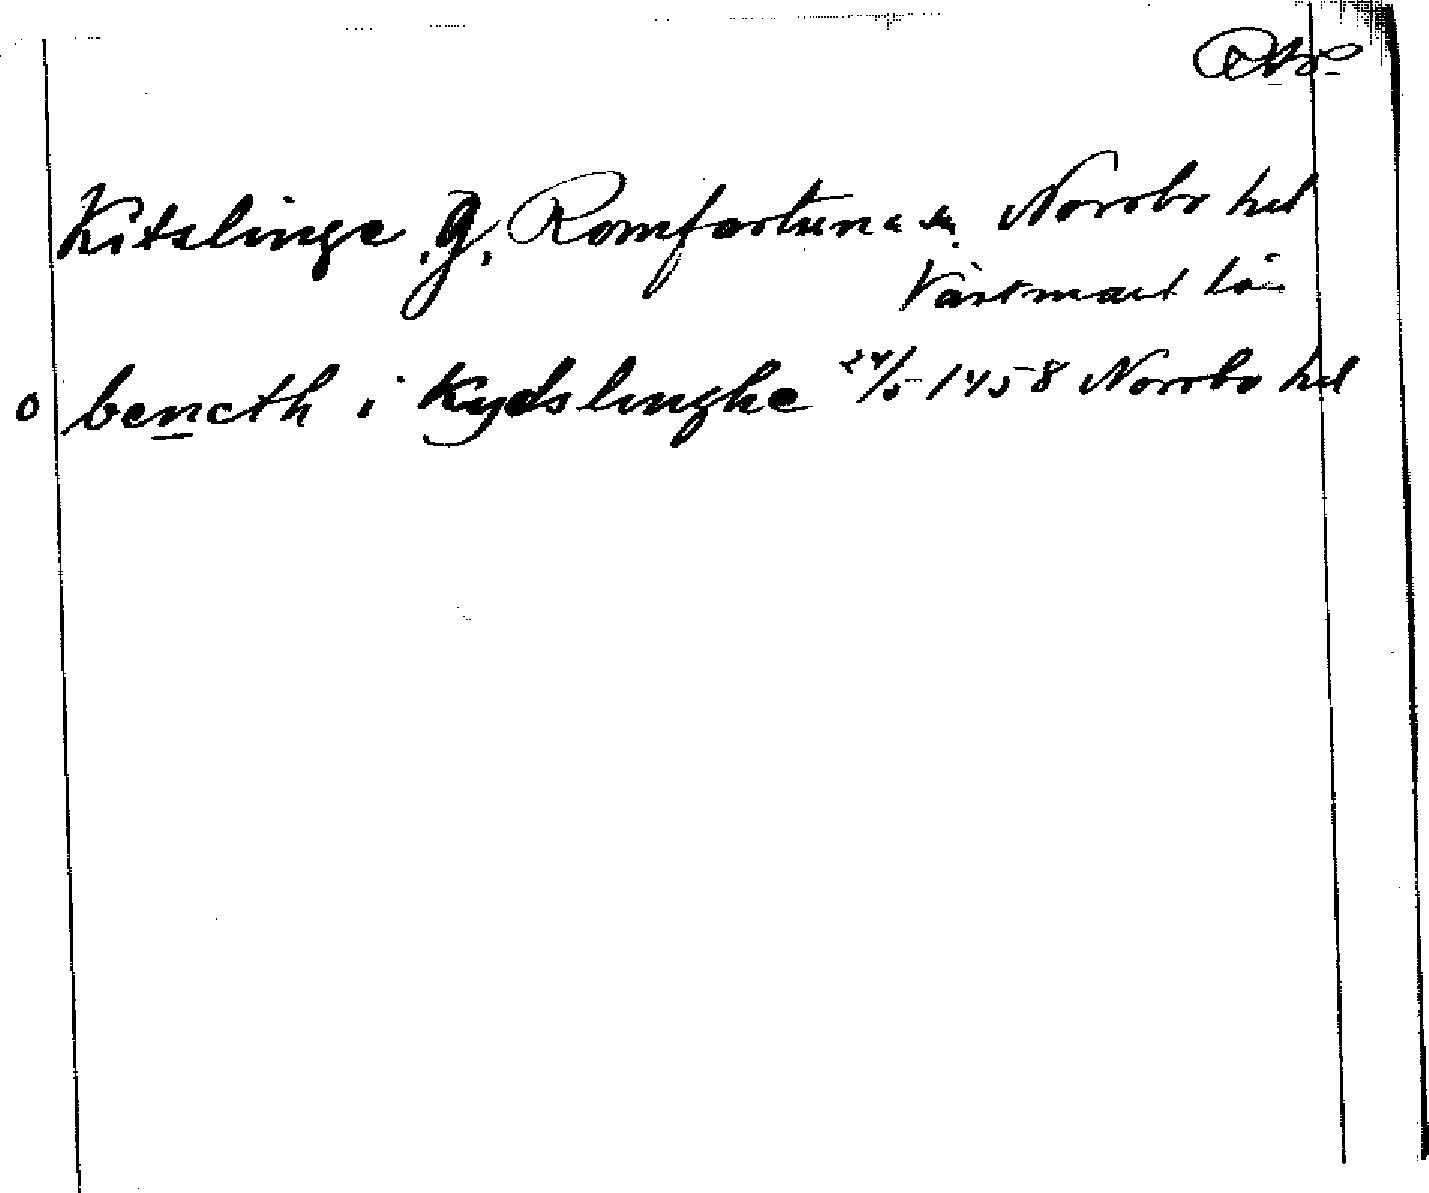 Kitslinge, g, Romfartuna sn. Norrbo hd
Västmanl län
o bencth i Kydslinghe 24/5 1458 Norrbo hd